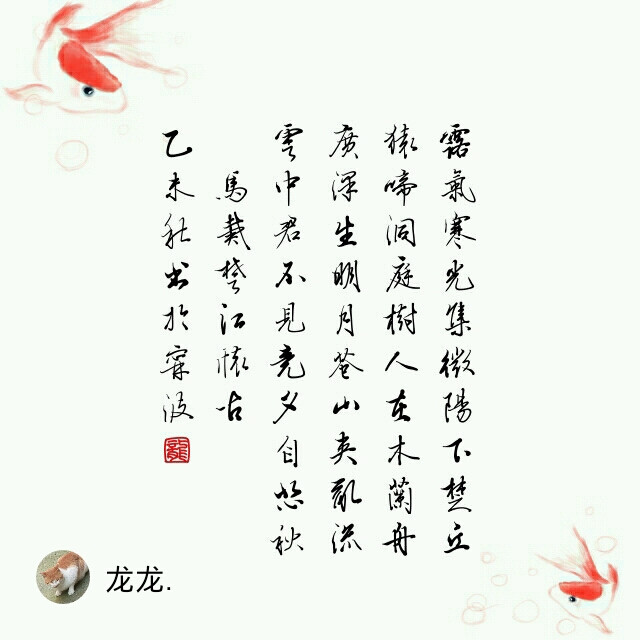 露氣寒光集微陽下楚丘
猿啼洞庭樹人在木蘭舟
廣澤生明月蒼山夾亂流
雲中君不見竟夕自悲秋
馬戴楚江懷古
乙未秋书於寧波
龍
龙龙.